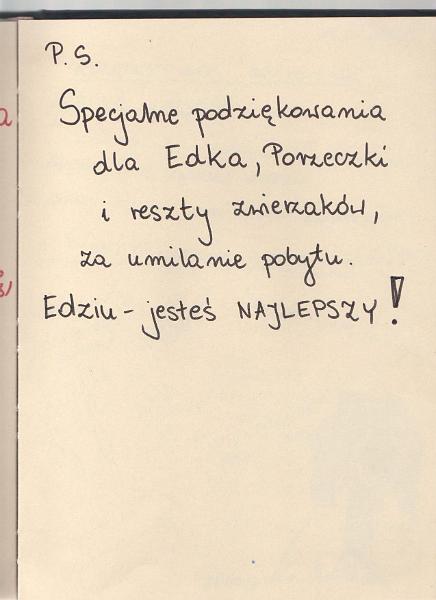 P.S.
Specjalne podziękowania
dla Edka, Porzeczki
i reszty zwierzaków,
za umilanie pobytu.
Edziu - jesteś NAJLEPSZY!